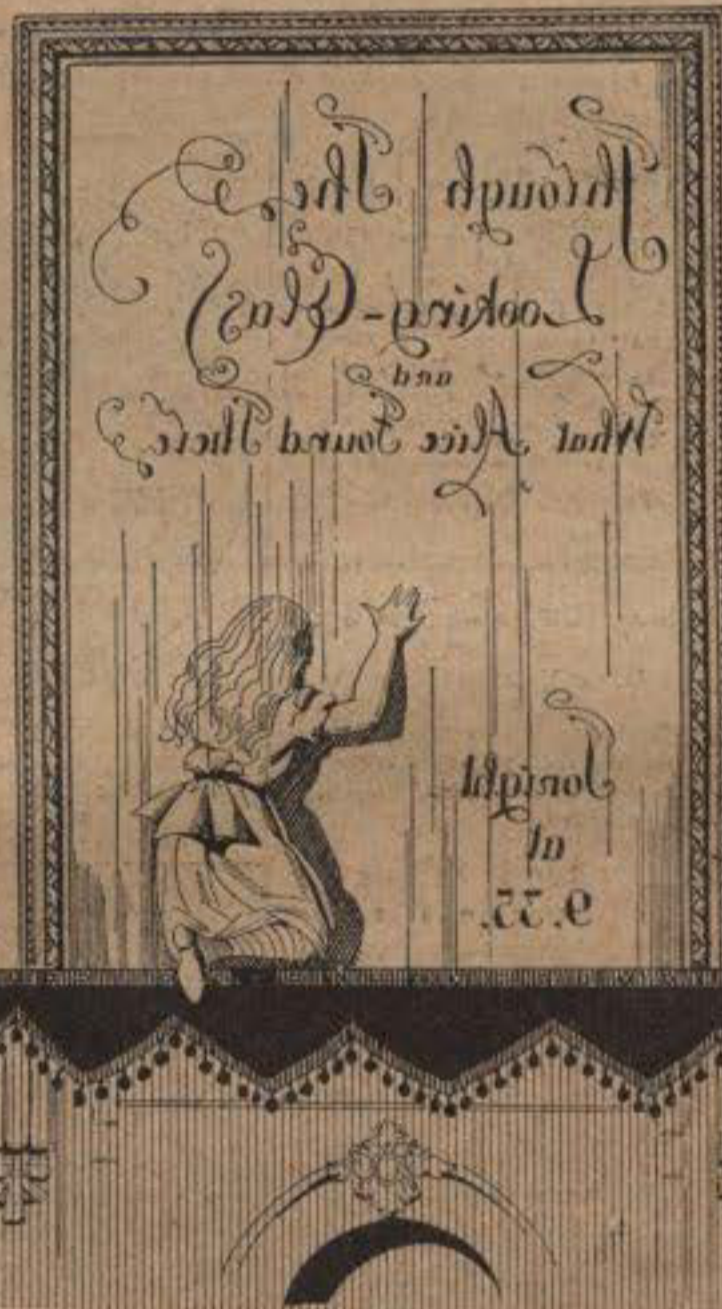 Through The
Looking-Glass
and
What Alice Found There
Tonight
at
9.35.